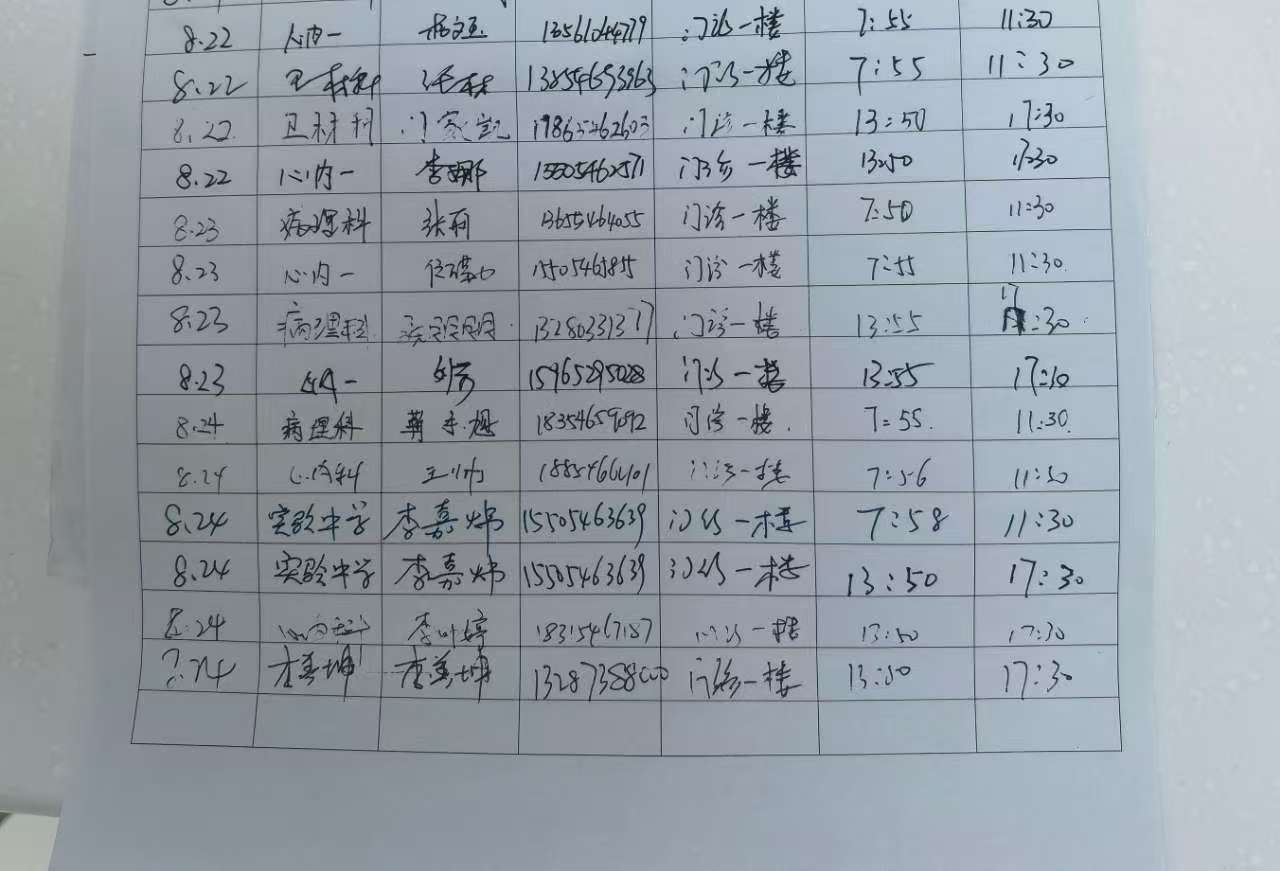 8.22 心内一 杨文玉 13561044779 门诊一楼 7:55 11:30
8.22 卫材科 13854693963 门诊一楼 7:55 11:30
8.22 卫材科 门家凯 19865262603 门诊一楼 13:50 17:30
8.22 心内一 李娜 门诊一楼 13:50 17:30
8.23 病理科 张莉 13655464055 门诊一楼 7:50 11:30
8.23 心内一 门诊一楼 7:55 11:30
8.23 病理科 门诊一楼 13:55 17:30
8.23 心内一 15965295028 门诊一楼 13:55 17:30
8.24 病理科 18354659092 门诊一楼 7:55 11:30
8.24 心内科 王帅 门诊一楼 7:56 11:30
8.24 实验中学 李嘉炜 15505463639 门诊一楼 7:58 11:30
8.24 实验中学 李嘉炜 15505463639 门诊一楼 13:50 17:30
8.24 心内科 李叶婷 18315467187 门诊一楼 13:50 17:30
8.24 李美坤 李美坤 13287388000 门诊一楼 13:50 17:30